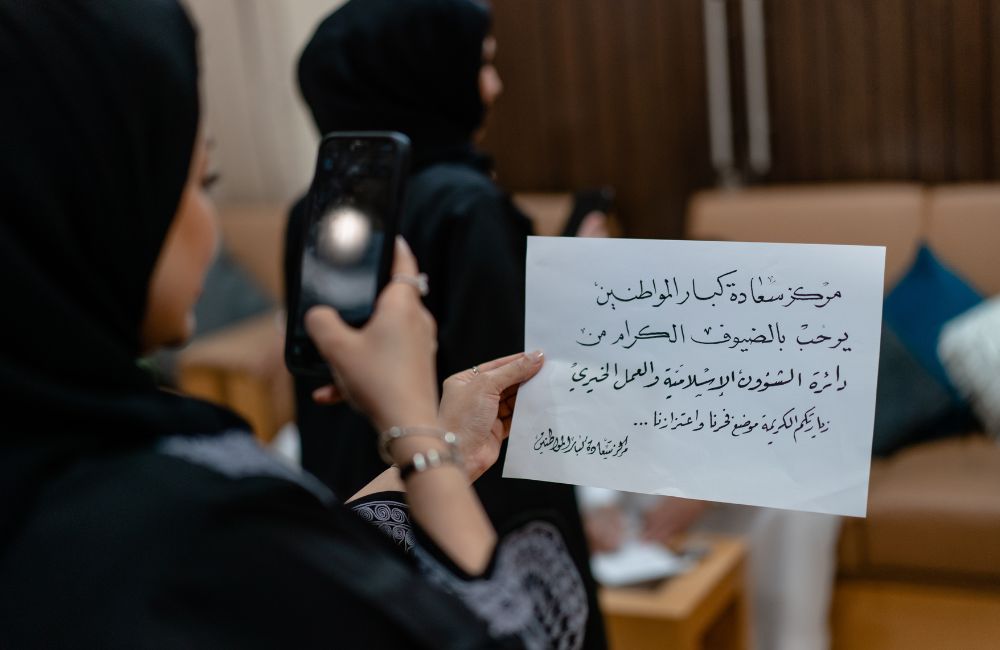 مركز سعادة كبار المواطنين
يرحب بالضيوف الكرام من
دائرة الشؤون الإسلامية والعمل الخيري
زيارتكم الكريمة موضع فخرنا واعتزازنا ...
مركز سعادة كبار المواطنين